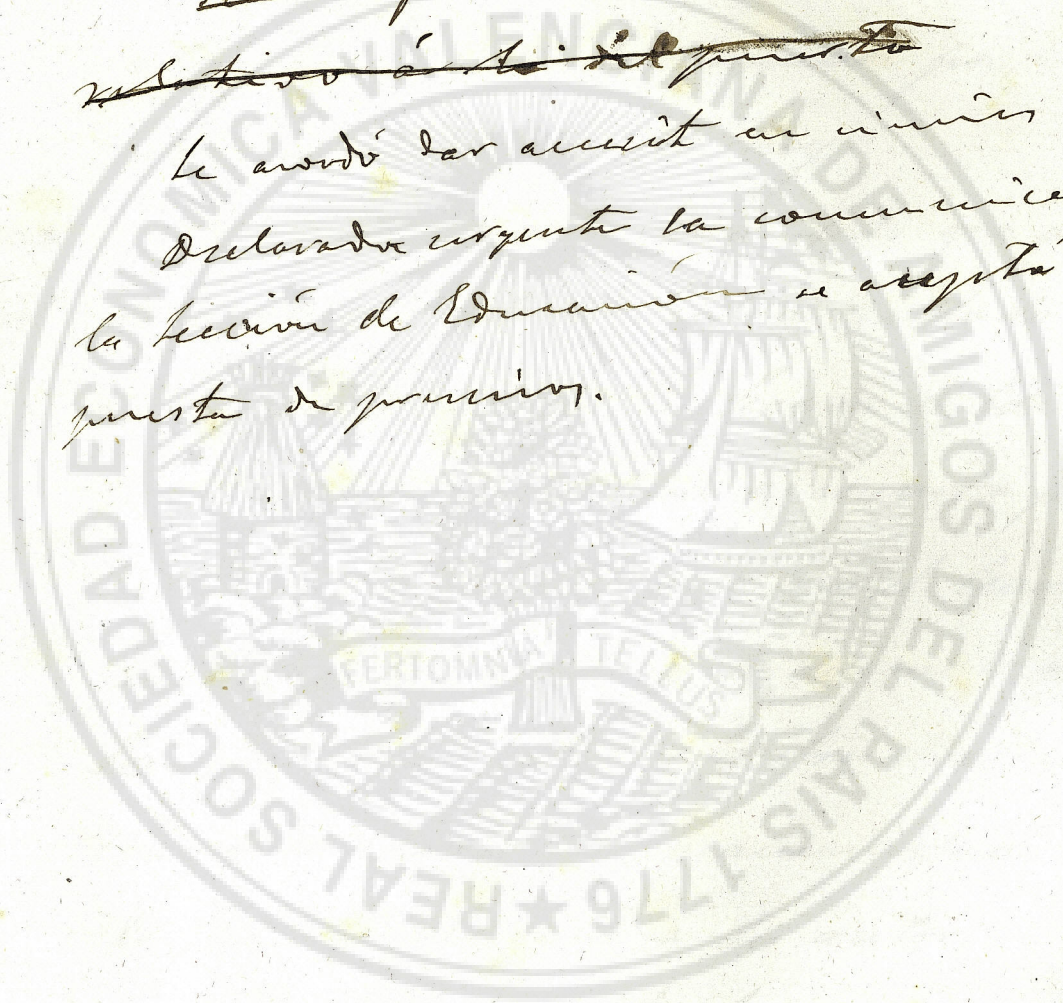 relativo á la del puerto
Se acordó dar accesit en
Declarada urgente la comunica
la Sección de Educación se aceptó
puesta de premios.
REAL SOCIEDAD ECONOMICA VALENCIANA DE AMIGOS DEL PAIS 1776
FERT OMNIA TELLUS